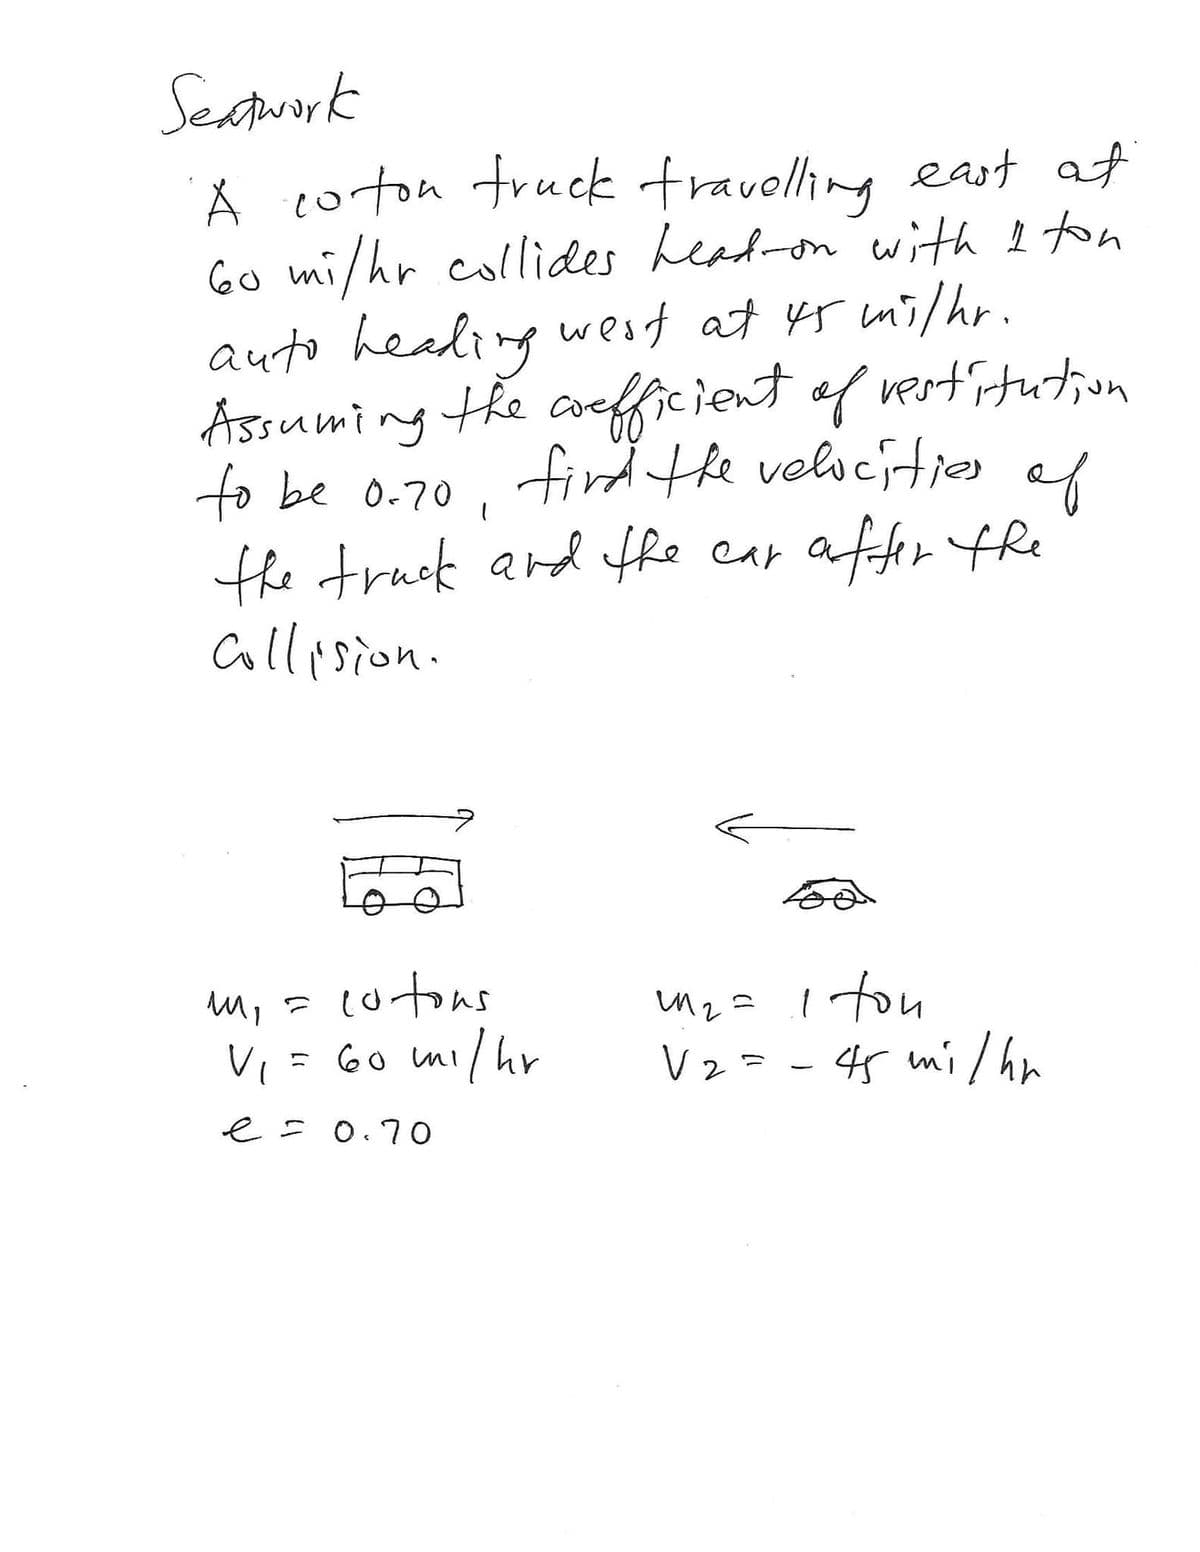 Seatwork
A 10 ton truck travelling east at
60 mi/hr collides head-on with 1 ton
auto heading west at 45 mi/hr.
Assuming the coefficient of restitution
to be 0.70, find the velocities of
the truck and the car after the
Collision.
m1 = 10 tons
m2 = 1 ton
V1 = 60 mi/hr
V2 = - 45 mi/hr
e = 0.70